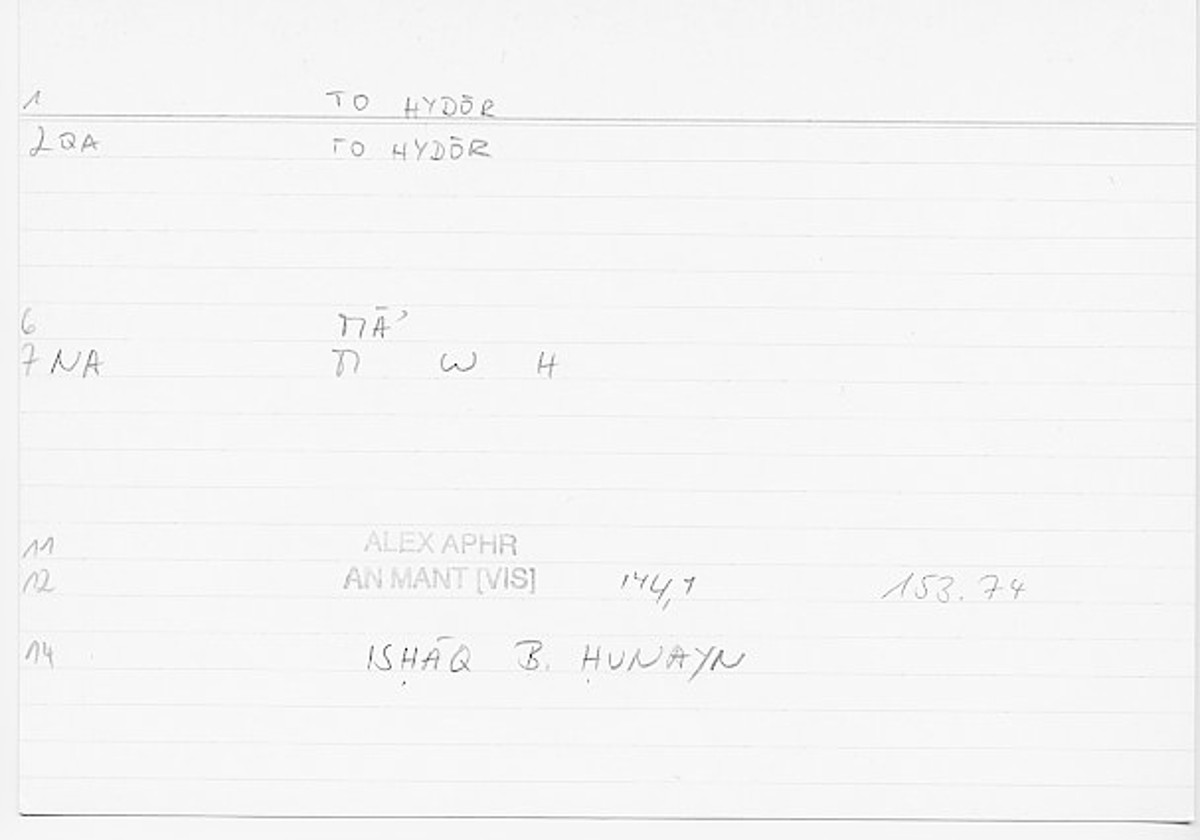 1 TO HYDŌR
2 QA TO HYDŌR
6 MĀ’
7 NA M W H
11 ALEX APHR
12 AN MANT [VIS] 144,1 153.74
14 ISḤĀQ B. ḤUNAYN